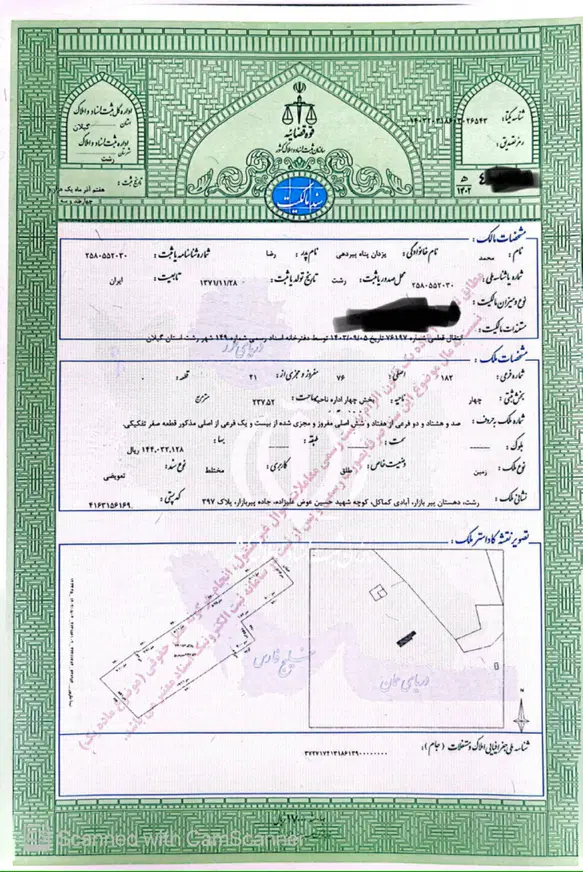 اداره کل ثبت اسناد و املاک
استان گیلان
اداره ثبت اسناد و املاک
شهرستان
رشت
تاریخ ثبت :
هفتم آذر ماه یک هزار و
چهارصد و سه
قوه قضائیه
سازمان ثبت اسناد و املاک کشور
سند مالکیت
شناسه یکتا :
رمز تصدیق :
۱۴۰۲
مشخصات مالک :
نام : محمد نام خانوادگی : یزدان پناه پیردهی نام پدر : رضا شماره شناسنامه یا ثبت : ۲۵۸۰۵۵۲۰۳۰
شماره یا شناسه ملی : ۲۵۸۰۵۵۲۰۳۰ محل صدور یا ثبت : رشت تاریخ تولد یا ثبت : ۱۳۷۱/۱۱/۲۸ تابعیت : ایران
نوع و میزان مالکیت :
مستندات مالکیت :
انتقال قطعی شماره ۷۶۱۹۷ تاریخ ۱۴۰۳/۰۹/۰۵ توسط دفترخانه اسناد رسمی شماره ۱۴۹ شهر رشت استان گیلان
مشخصات ملک :
شماره فرعی : ۱۸۲ اصلی : ۷۶ مفروز و مجزی از : ۲۱ قطعه :
بخش ثبتی : چهار ناحیه : بخش چهار اداره ناحیه مساحت : ۲۳۷.۵۲ مترمربع
شماره ملک بحروف : صد و هشتاد و دو فرعی از هفتاد و شش اصلی مفروز و مجزی شده از بیست و یک فرعی از اصلی مذکور قطعه صفر تفکیکی.
بلوک : سمت : طبقه : بها : ۱۴۴,۰۳۲,۱۲۸ ریال
نوع ملک : زمین وضعیت خاص : طلق کاربری : مختلط نوع سند : تعویضی
نشانی ملک : رشت، دهستان پیر بازار، آبادی کماکل، کوچه شهید حسین عوض علیزاده، جاده پیربازار، پلاک ۳۹۷ کد پستی : ۴۱۶۳۱۵۶۱۶۹
تصویر نقشه کاداستر ملک :
خلیج فارس
دریای عمان
N
شناسه ملی جغرافیایی املاک و مستغلات (جام) :
Scanned with CamScanner